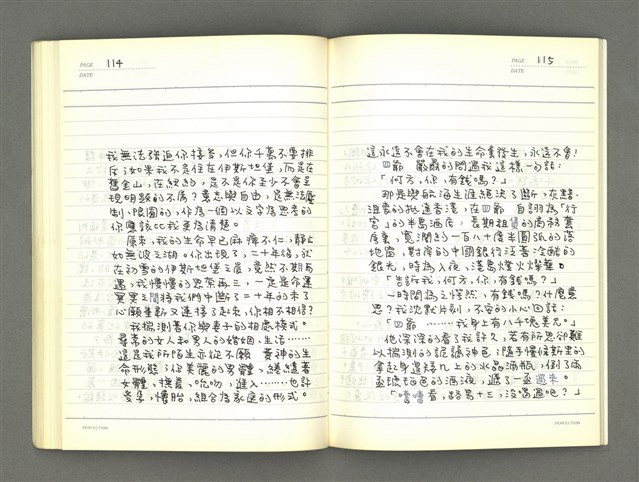 PAGE 114
DATE
我無法強迫你接合,但你千萬不要排
斥;如果我不是住在伊斯坦堡,而是在
舊金山,在紐約,是不是你至少不會呈
現明顯的不馬?意志與自由,是無法
制、限圍的,作為一個以文字為思考的
你應該比我更為清楚。
原來,我的生命早已麻痺不仁,靜止
如無波之湖。你出現了,二十年後,就
在初雪的伊斯坦堡之晨,竟然不期而
遇,我慢慢的思索再三,一定是命運
冥冥之間將我們中斷了二十年的未了
心願重新又連接了起來,你相不相信?
我揣測著你與妻子的相處模式。
尋常的女人和男人的婚姻、生活……
這是我所陌生亦從不願 費神的生
命形態;你美麗的男體,繾綣著
女體,撫負、吮吻,進入……也許
受孕,懷胎,組合為家庭的形式。
PERFECTION
PAGE 115
DATE
這永遠不會在我的生命裏發生,永遠不會!
四爺 嚴肅的問過我這樣一句話:
「何方,你,有錢嗎?」
那是與航海生涯絕決了斷,灰黯
沮喪的抵達香港,在四爺 自謂為「行
宮」的半島酒店,長期租賃的商務舊
房裏,寬闊約一百八十度半圓弧的落
地窗,對岸的中國銀行泛著冷酷的
銀光,時為入夜,淺島燈火燦華。
「告訴我,何方,你,有錢嗎?」
一時間為之愕然,有錢嗎?什麼意
思?我沈默片刻,不安的小心回話:
「四爺……我身上有八千塊美元。」
他深深的看了我許久,若有所思卻難
以揣測的詭譎神色;隨手慢條斯里的
拿起身邊矮几上的水晶酒瓶,倒了兩
盃琥珀色的酒液,遞了一盃過來。
「嚐嚐看,路易十三,沒喝過吧?」
PERFECTION